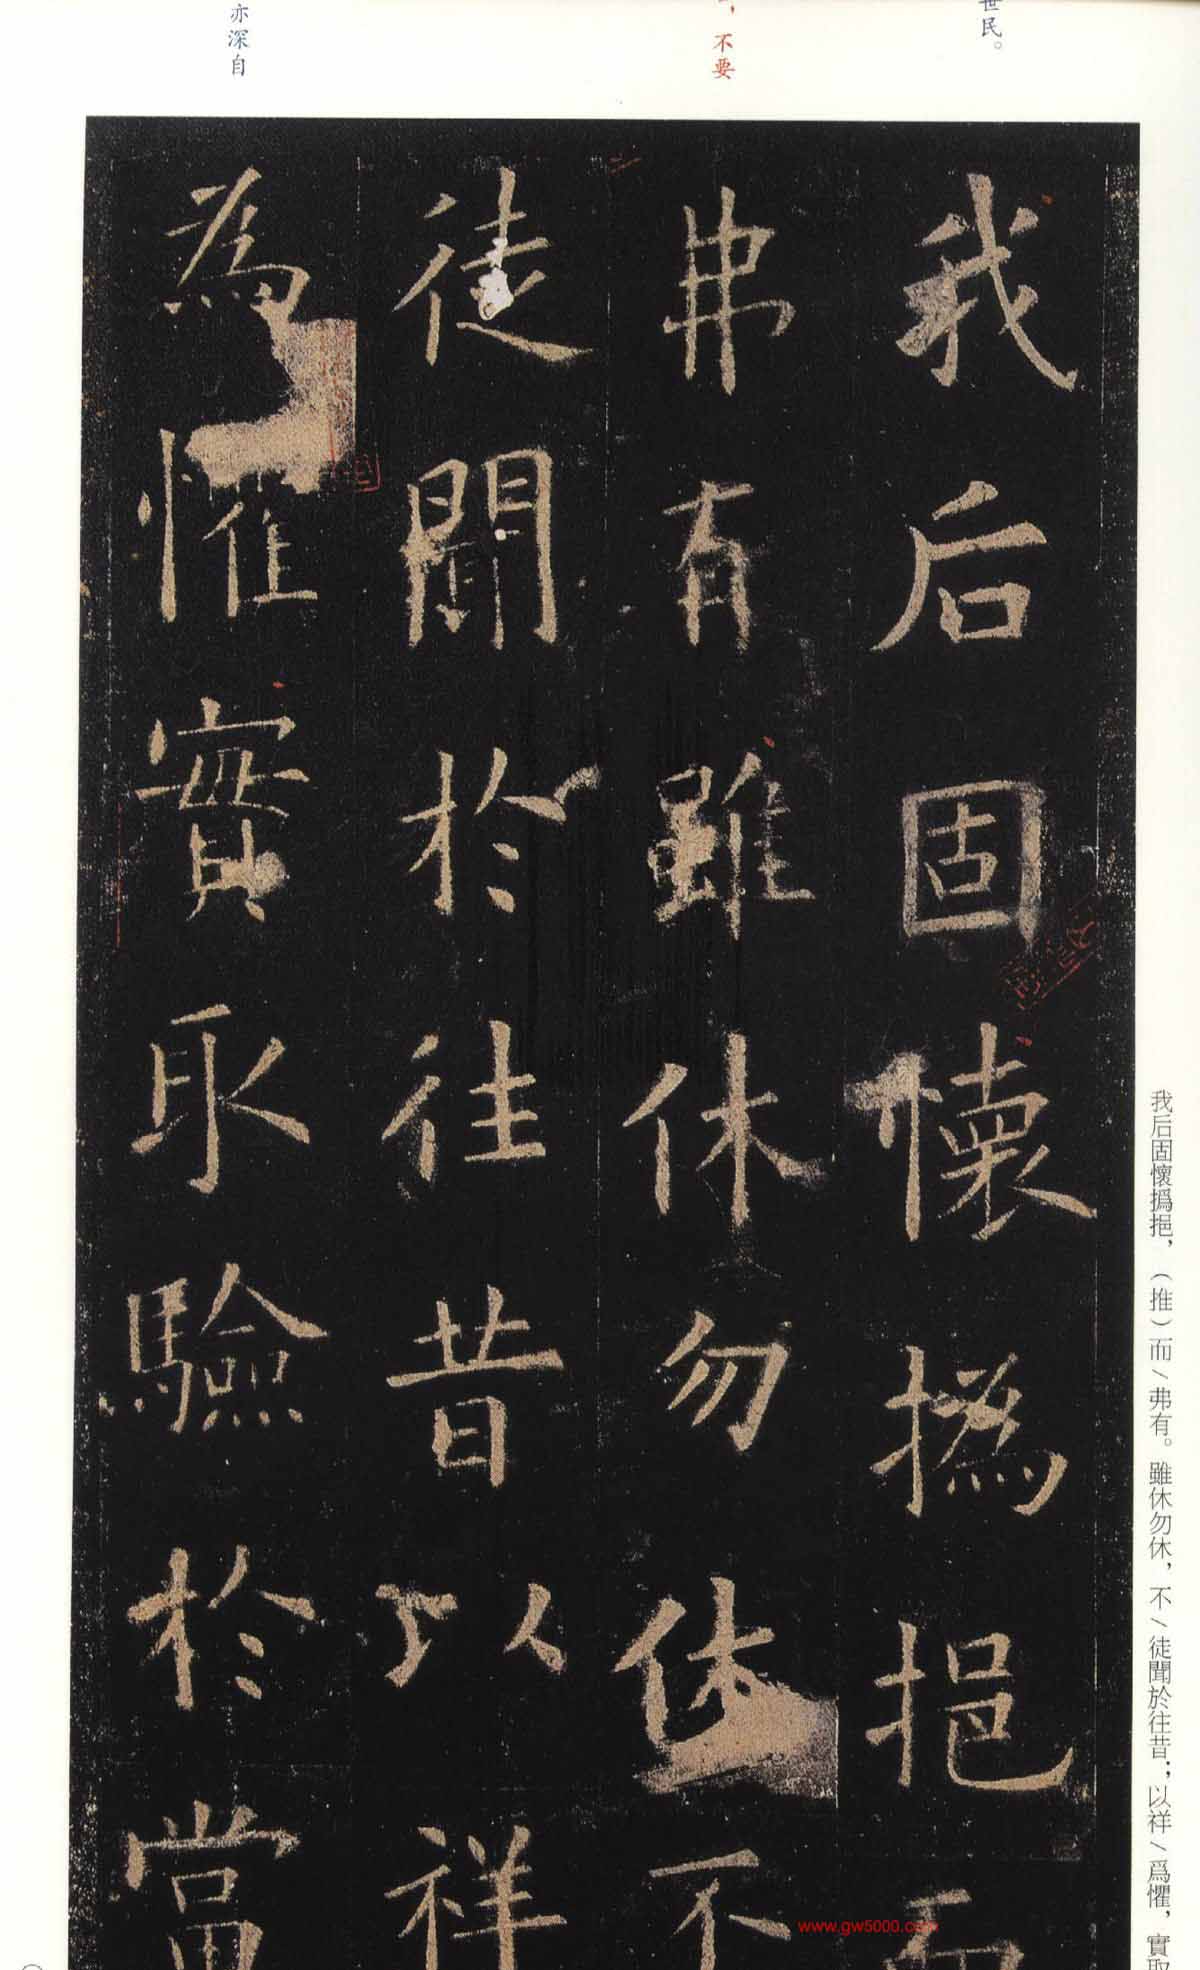 世民。
，不要
亦深自
我后固懷撝挹而
弗有雖休勿休不
徒聞於往昔以祥
為懼實取驗於當
我后固懷撝挹，（推）而\弗有。雖休勿休，不\徒聞於往昔；以祥\爲懼，實取
www.gw5000.com